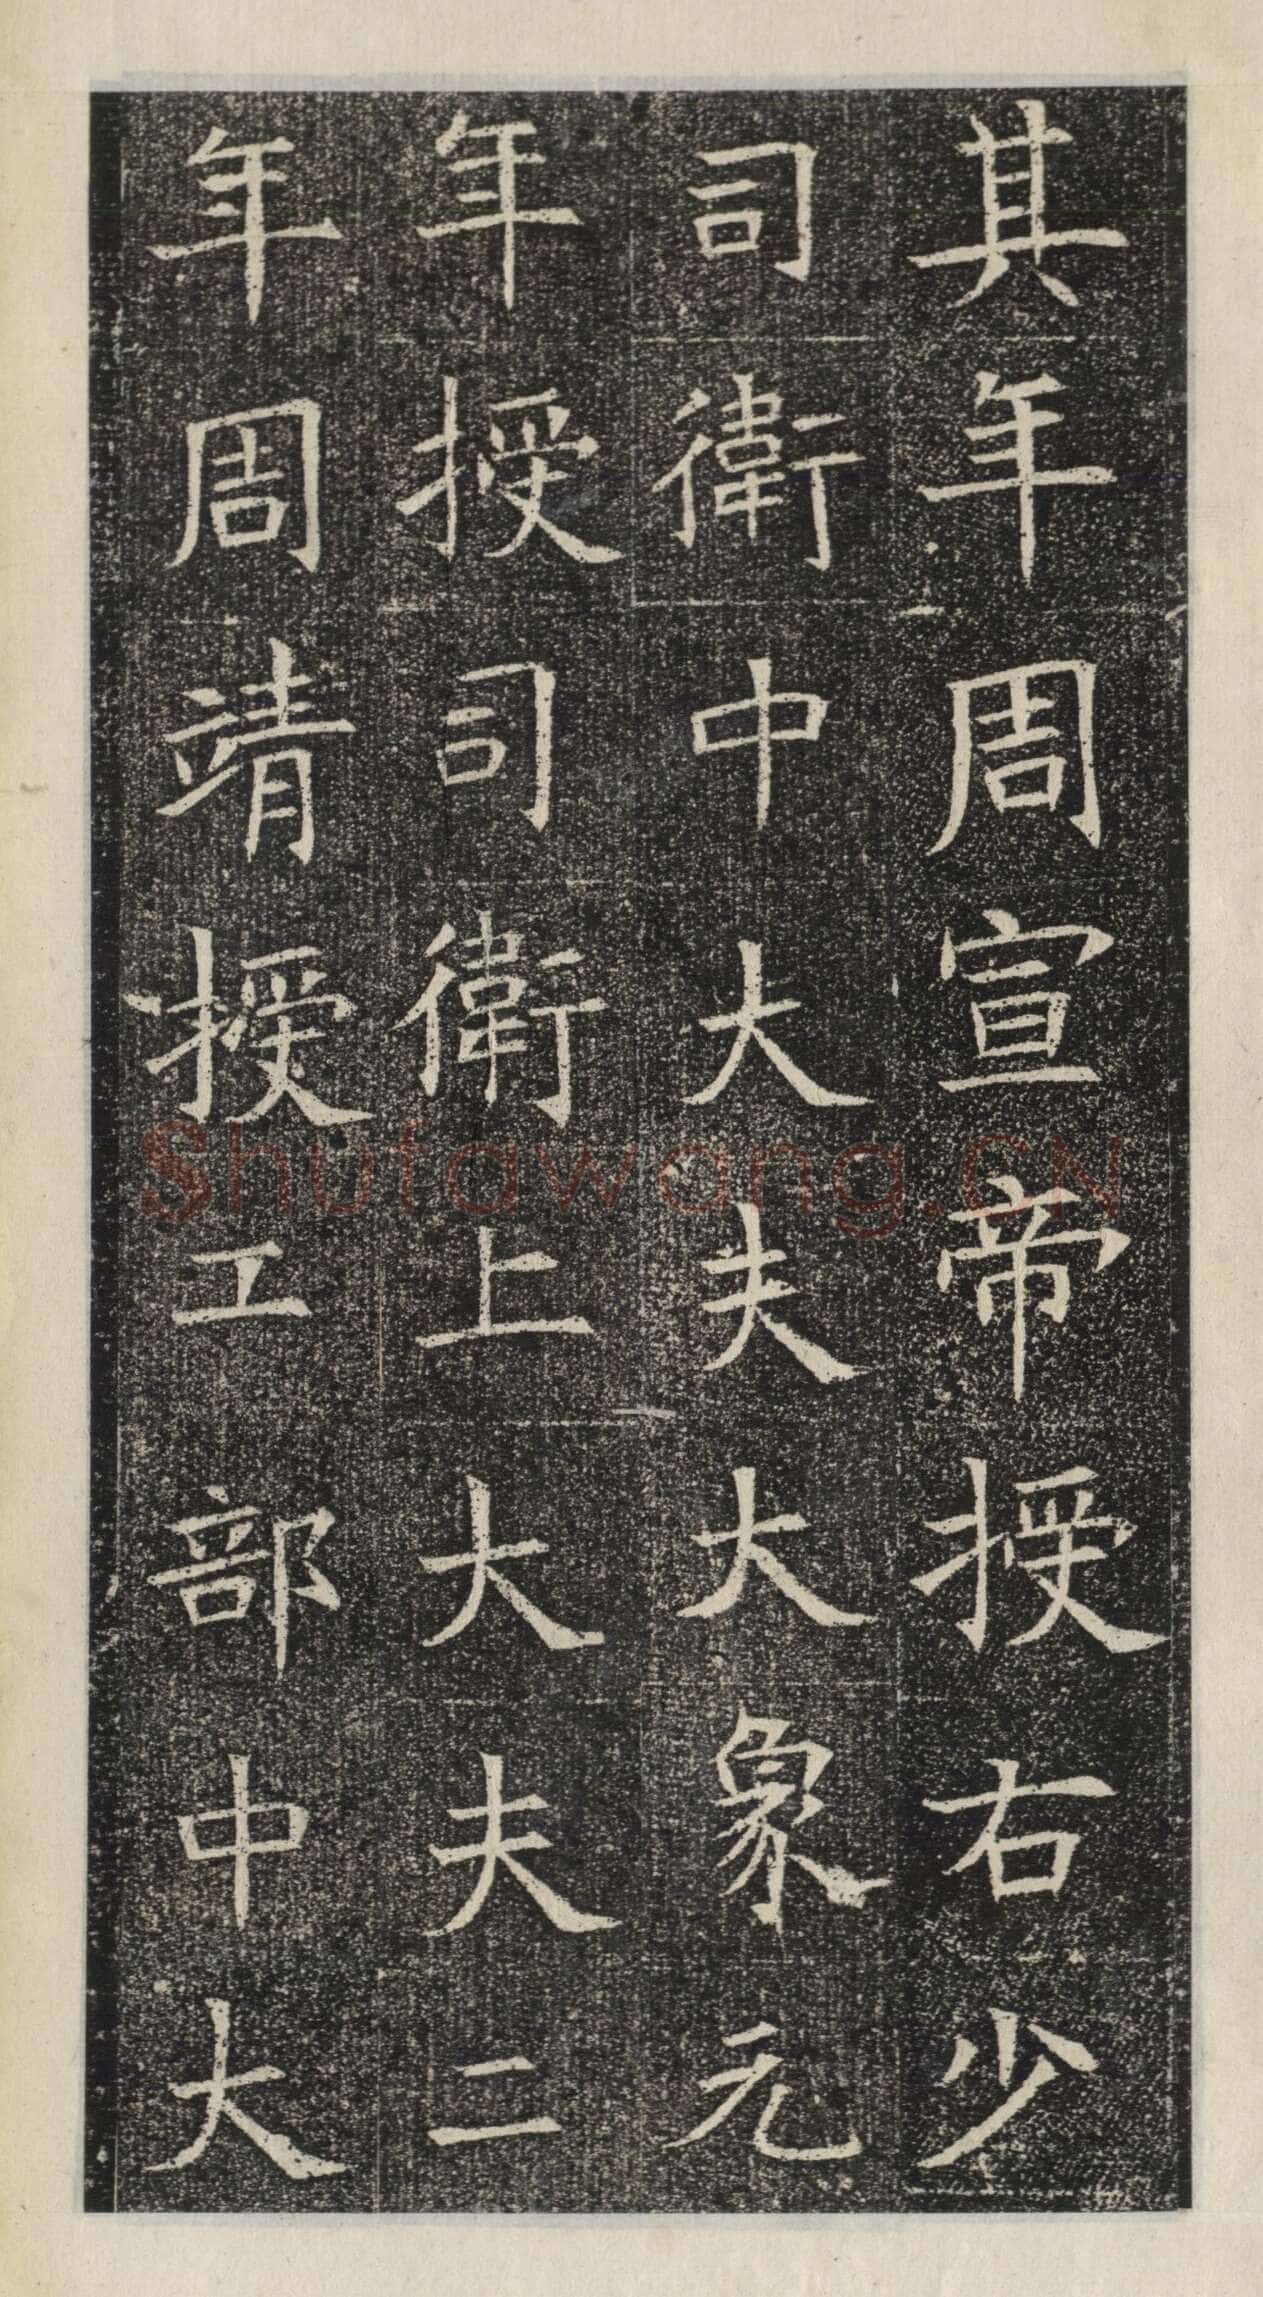 其年周宣帝授右少
司衛中大夫大象元
年授司衛上大夫二
年周靖授工部中大
Shufawang.CN